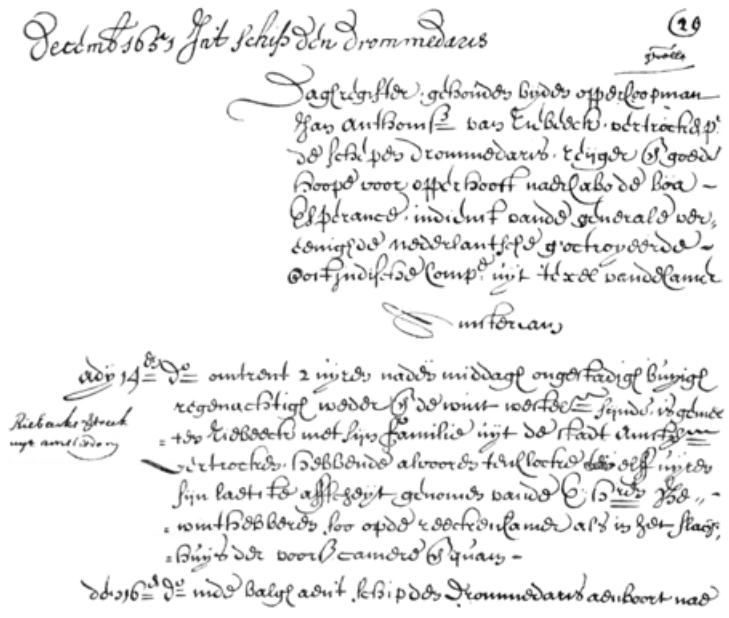 Decemb 1651 Int schip den drommedaris
20
Daghregister gehouden byden oppercoopman
Jan Anthonisz van Riebeeck vertreckende pr
de schepen drommedaris reijger & goede
hoope voor opperhooft nae Cabo de boa
Esperance indienst vande generale ver
eenighde nederlantsche g'octroyeerde
Oostindische Compe uijt texel vande Camer
Amsterdam
ady 14en do omtrent 2 uijren nade middach ongestadich buijigh
regenachtigh weder & de wint westel: sijnde is gemee
ten Riebeeck met sijn familie uijt de stadt Amsterdam
vertrocken hebbende alvoorens ten clocke elff uijren
sijn laeste affscheijt genomen vande E: hren Be
winthebberen soo opde reeckencamer als in het slach
huijs der voors camere & quam
Riebeeks vertreck
uijt amsterdam
den 16en do inde balgh aent schip den Drommedaris aenboort nae